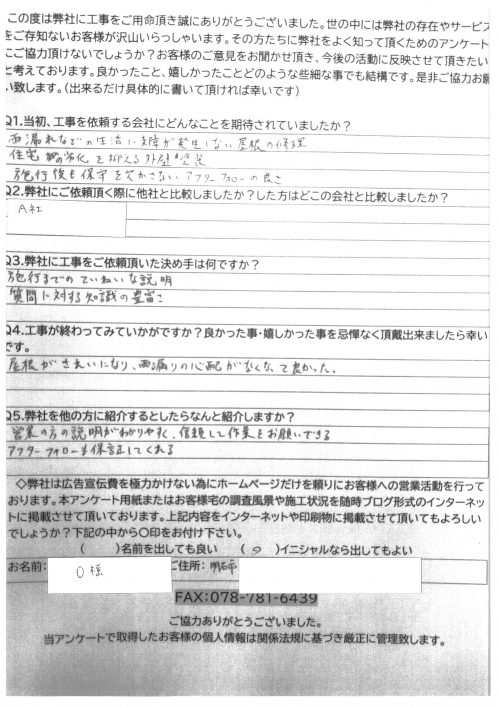 この度は弊社に工事をご用命頂き誠にありがとうございました。世の中には弊社の存在やサービス
をご存知ないお客様が沢山いらっしゃいます。その方たちに弊社をよく知って頂くためのアンケート
にご協力頂けないでしょうか？お客様のご意見をお聞かせ頂き、今後の活動に反映させて頂きたい
と考えております。良かったこと、嬉しかったことどのような些細な事でも結構です。是非ご協力お願
い致します。（出来るだけ具体的に書いて頂ければ幸いです）
Q1.当初、工事を依頼する会社にどんなことを期待されていましたか？
雨漏れなどの生活に支障が発生しない屋根の修理
住宅の劣化を抑える外壁塗装
施行後も保守を欠かさないアフターフォローの良さ
Q2.弊社にご依頼頂く際に他社と比較しましたか？した方はどこの会社と比較しましたか？
A社
Q3.弊社に工事をご依頼頂いた決め手は何ですか？
施行までのていねいな説明
質問に対する知識の豊富さ
Q4.工事が終わってみていかがですか？良かった事・嬉しかった事を忌憚なく頂戴出来ましたら幸い
です。
屋根がきれいになり、雨漏りの心配がなくなって良かった。
Q5.弊社を他の方に紹介するとしたらなんと紹介しますか？
営業の方の説明がわかりやすく、信頼して作業をお願いできる
アフターフォローも保証してくれる
◇弊社は広告宣伝費を極力かけない為にホームページだけを頼りにお客様への営業活動を行って
おります。本アンケート用紙またはお客様宅の調査風景や施工状況を随時ブログ形式のインターネッ
トに掲載させて頂いております。上記内容をインターネットや印刷物に掲載させて頂いてもよろしい
でしょうか？下記の中から〇印をお付け下さい。
（　　）名前を出しても良い　（ ○ ）イニシャルなら出してもよい
お名前：　O様　ご住所：明石市
FAX:078-781-6439
ご協力ありがとうございました。
当アンケートで取得したお客様の個人情報は関係法規に基づき厳正に管理致します。